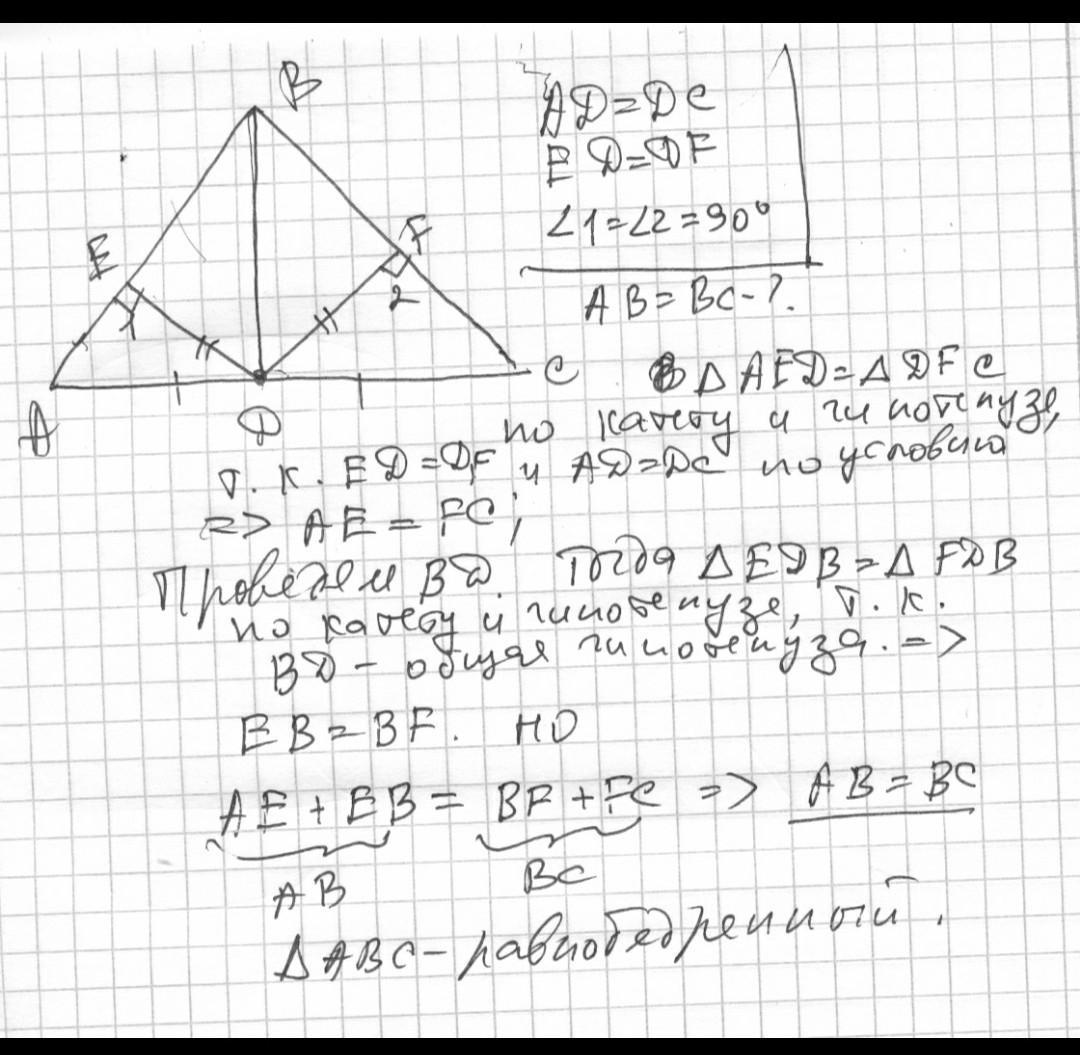 B
E
F
1
2
A
D
C
AD=DC
ED=DF
∠1=∠2=90°
AB=BC-?.
В △AED=△DFC
по катету и гипотенузе,
т. к. ED=DF и AD=DC по условию
=> AE=FC;
Проведем BD. Тогда △EDB=△FDB
по катету и гипотенузе, т. к.
BD - общая гипотенуза. =>
EB=BF. НО
AE+EB=BF+FC => AB=BC
AB BC
△ABC-равнобедренный.